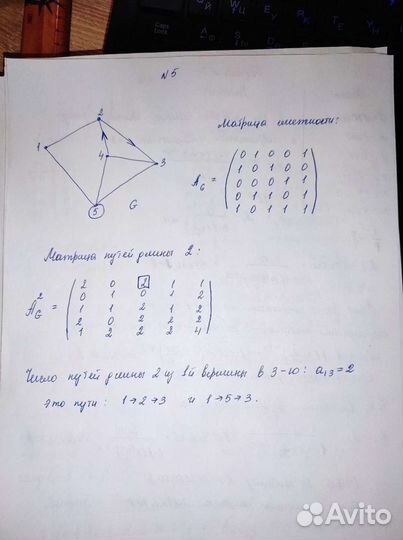 N5
2
1
4
3
5
G
Матрица смежности:
A_G =
0 1 0 0 1
1 0 1 0 0
0 0 0 1 1
0 1 1 0 1
1 0 1 1 1
Матрица путей длины 2:
A²_G =
2 0 2 1 1
0 1 0 1 2
1 1 2 1 2
2 0 2 2 2
1 2 2 2 4
Число путей длины 2 из 1й вершины в 3-ю: a₁₃ = 2
Это пути: 1→2→3 и 1→5→3.
Avito